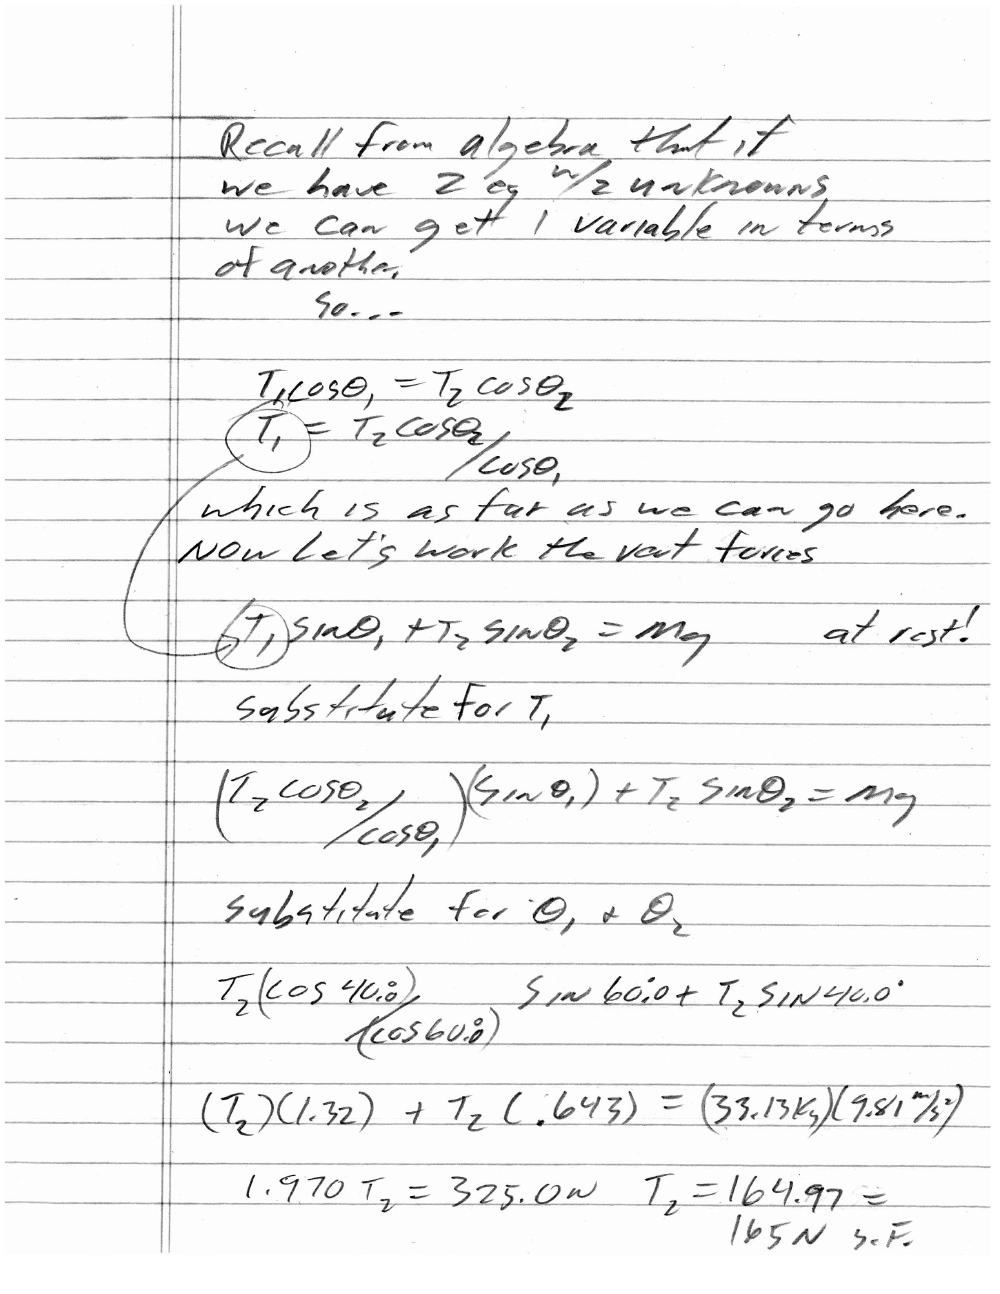 Recall from algebra that if
we have 2 eq w/2 unknowns
we can get 1 variable in terms
of another.
so...
T₁cosθ₁ = T₂ cosθ₂
T₁ = T₂ cosθ₂/cosθ₁
which is as far as we can go here.
Now Let's work the vert forces
T₁ sinθ₁ + T₂ sinθ₂ = mg at rest!
substitute for T₁
(T₂ cosθ₂/cosθ₁)(sinθ₁) + T₂ sinθ₂ = mg
substitute for θ₁ + θ₂
T₂(cos 40.0°)/(cos60.0°) sin 60.0° + T₂ SIN 40.0°
(T₂)(1.32) + T₂ (.643) = (33.13Kg)(9.81 m/s²)
1.970 T₂ = 325.0N T₂ = 164.97 =
165N s.F.